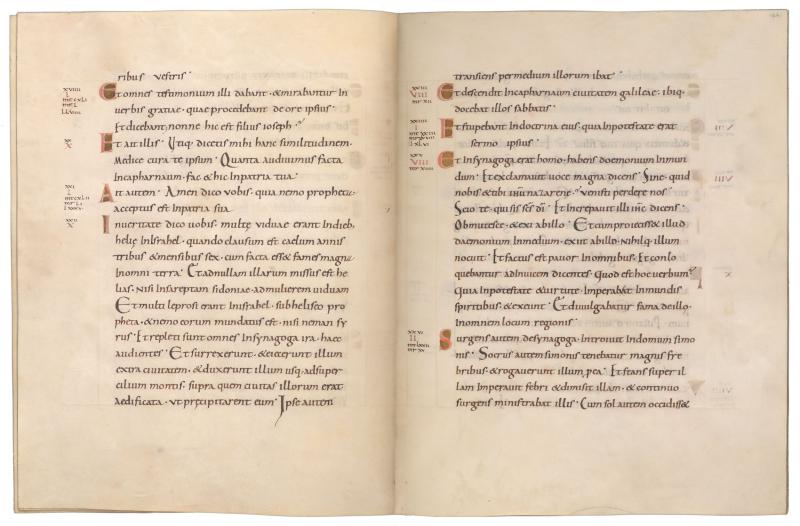 ribus vestris
Et omnes testimonium illi dabant · & mirabantur In
verbis gratiae · quae procedebant de ore ipsius ·
Et dicebant, nonne hic est filius ioseph ·
Et ait illis · Utiq; dicetis mihi hanc similitudinem ·
Medice cura te ipsum · Quanta audiuimus facta
Incapharnaum · fac & hic Inpatria tua ·
Ait autem · Amen dico vobis · quia nemo propheta
acceptus est Inpatria sua
Inueritate dico uobis · multę viduae erant Indieb;
helię Inisrahel · quando clausum est caelum annis
tribus & mensibus sex · cum facta ess& fames magna
Inomni terra · Et adnullam illarum missus est he
lias · Nisi Insareptam sidoniae · admulierem uiduam
Et multi leprosi erant Inisrahel · subheliseo pro
pheta · & nemo eorum mundatus est · nisi neman sy
rus · Et repleti sunt omnes Insynagoga ira · haec
audientes · Et surrexerunt · & eiecerunt illum
extra ciuitatem · & duxerunt illum usq; adsuper
cilium montis · supra quem ciuitas illorum erat
aedificata · ut pręcipitarent eum · Ipse autem
transiens permedium illorum ibat ·
Et descendit Incapharnaum ciuitatem galileae · ibiq;
docebat illos sabbatis ·
Et stupebant Indoctrina eius · quia Inpotestate erat
sermo ipsius ·
Et Insynagoga erat homo · habens daemonium Inmun
dum · Et exclamauit uoce magna dicens · Sine · quid
nobis & tibi ihu nazarene · venisti perdere nos
Scio te · qui sis scs di · Et Increpauit illi ihc dicens ·
Obmutesce · & exi abillo · Et cum proiecisset illud
daemonium Inmedium · exiit abillo · Nihilq; illum
nocuit · Et factus est pauor Inomnibus · Et conlo
quebantur adinuicem dicentes · Quod est hoc uerbum
Quia Inpotestate & uirtute · Imperabat Inmundis
spiritibus · & exeunt · Et diuulgabatur fama deillo ·
Inomnem locum regionis ·
Surgens autem desynagoga · Introiuit Indomum simo
nis · Socrus autem simonis tenebatur magnis fre
bribus · & rogauerunt illum, pea · Et stans super il
lam Imperauit febri · & dimisit illam · & continuo
surgens ministrabat illis · Cum sol autem occidiss&